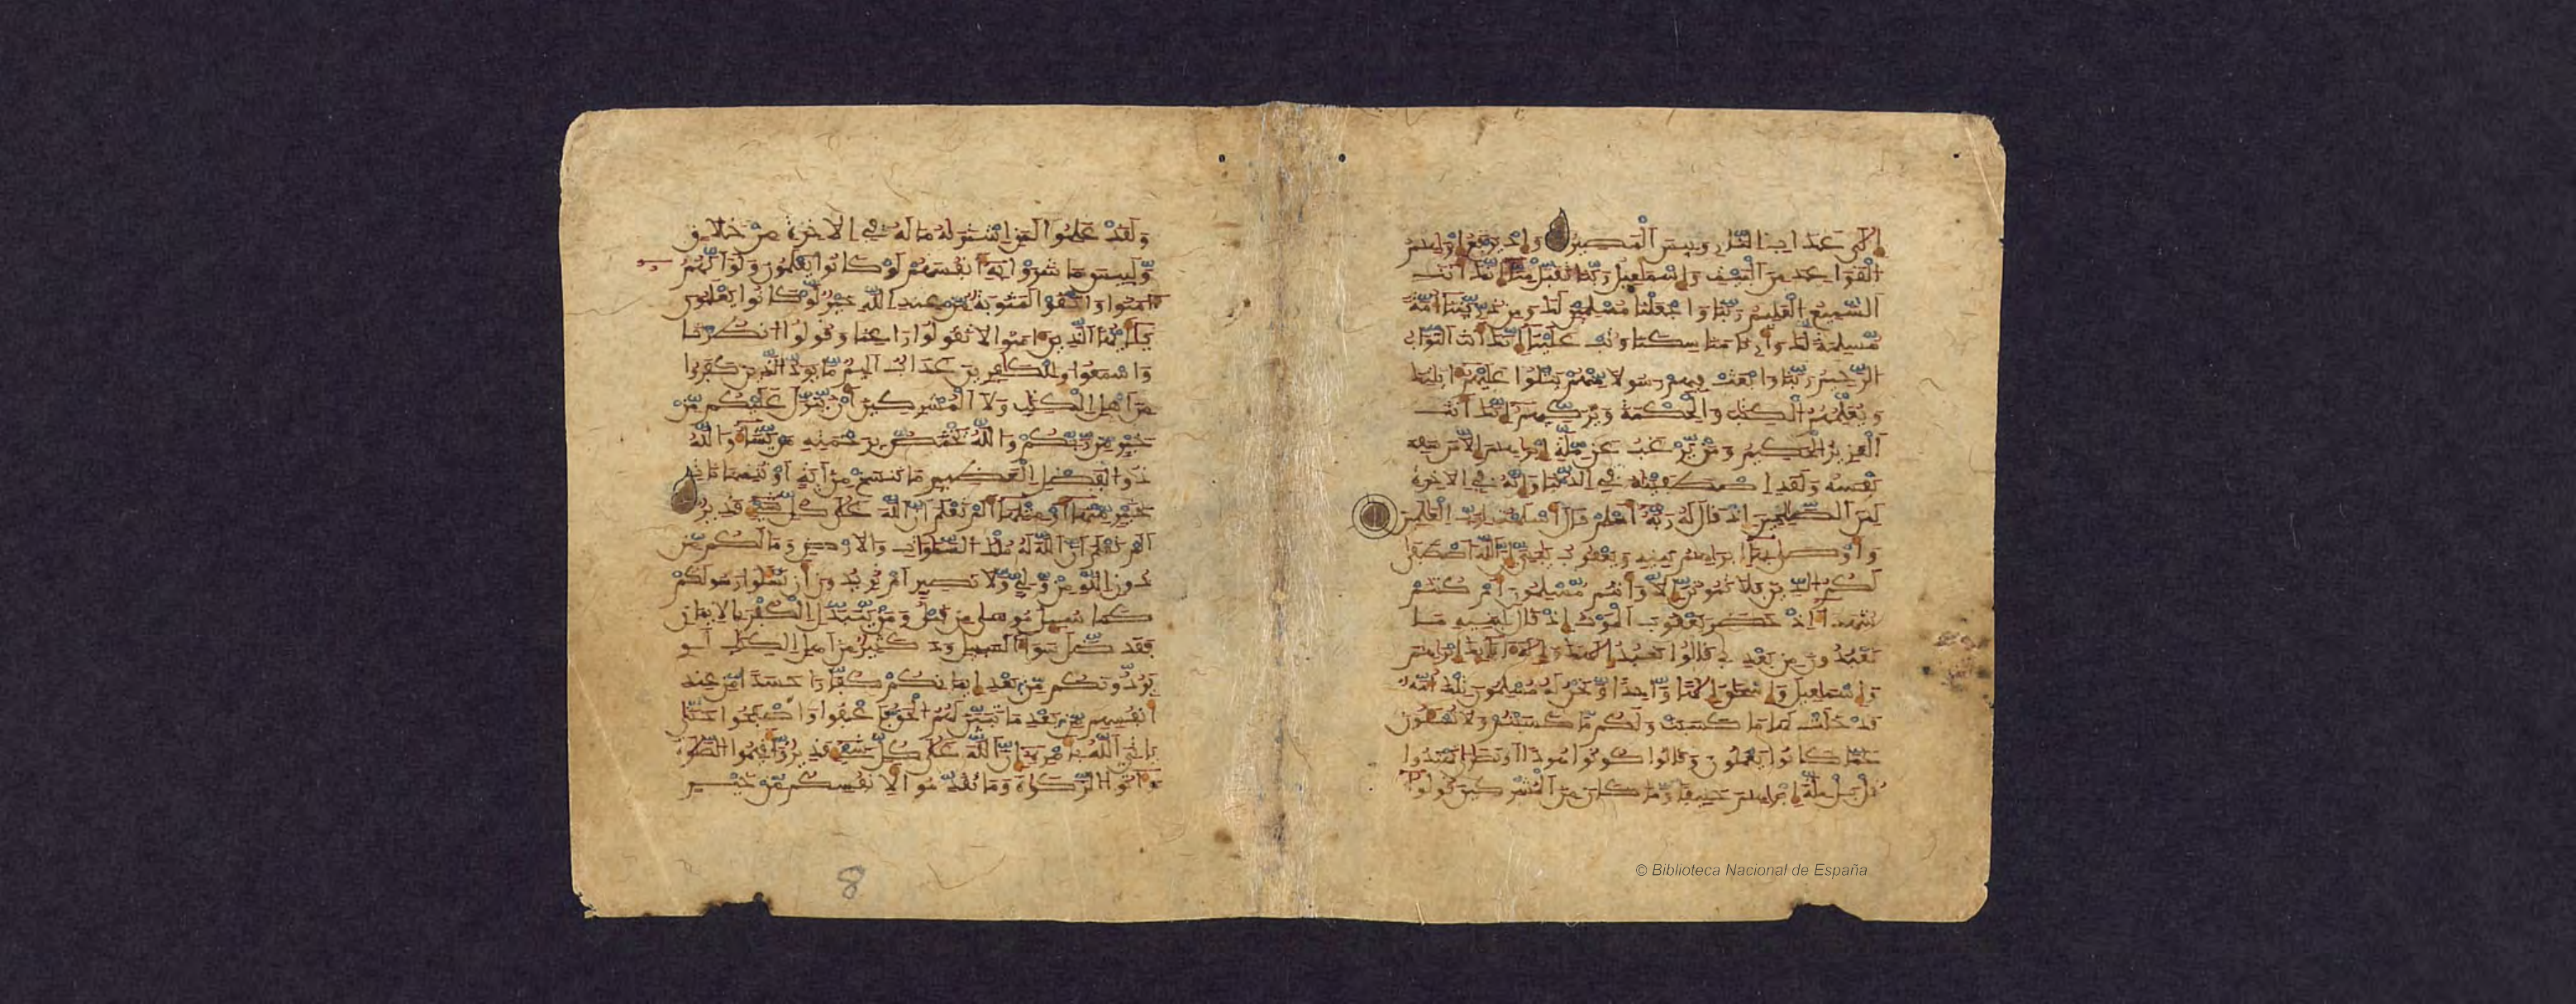 الى عذاب النار وبيس المصير واذ يرفع ابرهيم
القواعد من البيت واسمعيل ربنا تقبل منا انك انت
السميع العليم ربنا واجعلنا مسلمين لك ومن ذريتنا امة
مسلمة لك وارنا مناسكنا وتب علينا انك انت التواب
الرحيم ربنا وابعث فيهم رسولا منهم يتلوا عليهم ايتك
ويعلمهم الكتب والحكمة ويزكيهم انك انت
العزيز الحكيم ومن يرغب عن ملة ابرهيم الا من سفه
نفسه ولقد اصطفينه في الدنيا وانه في الاخرة
لمن الصلحين اذ قال له ربه اسلم قال اسلمت لرب العلمين
واوصى بها ابرهيم بنيه ويعقوب يبني ان الله اصطفى
لكم الدين فلا تموتن الا وانتم مسلمون ام كنتم
شهدا اذ حضر يعقوب الموت اذ قال لبنيه ما
تعبدون من بعدي قالوا نعبد الهك واله ابايك ابرهيم
واسماعيل واسحق الها واحدا ونحن له مسلمون تلك امة
قد خلت لها ما كسبت ولكم ما كسبتم ولا تسلون
عما كانوا يعملون وقالوا كونوا هودا او نصرى تهتدوا
قل بل ملة ابرهيم حنيفا وما كان من المشركين قولوا
ولقد علموا لمن اشتريه ما له في الاخرة من خلاق
ولبيس ما شروا به انفسهم لو كانوا يعلمون ولو انهم
امنوا واتقوا لمثوبة من عند الله خير لو كانوا يعلمون
يايها الذين امنوا لا تقولوا راعنا وقولوا انظرنا
واسمعوا وللكفرين عذاب اليم ما يود الذين كفروا
من اهل الكتب ولا المشركين ان ينزل عليكم من
خير من ربكم والله يختص برحمته من يشا والله
ذو الفضل العظيم ما ننسخ من اية او ننسها نات
بخير منها او مثلها الم تعلم ان الله على كل شي قدير
الم تعلم ان الله له ملك السموات والارض وما لكم من
دون الله من ولي ولا نصير ام تريدون ان تسلوا رسولكم
كما سيل موسى من قبل ومن يتبدل الكفر بالايمان
فقد ضل سوا السبيل ود كثير من اهل الكتب لو
يردونكم من بعد ايمانكم كفارا حسدا من عند
انفسهم من بعد ما تبين لهم الحق فاعفوا واصفحوا حتى
ياتي الله بامره ان الله على كل شي قدير واقيموا الصلوة
واتوا الزكوة وما تقدموا لانفسكم من خير
8
© Biblioteca Nacional de España